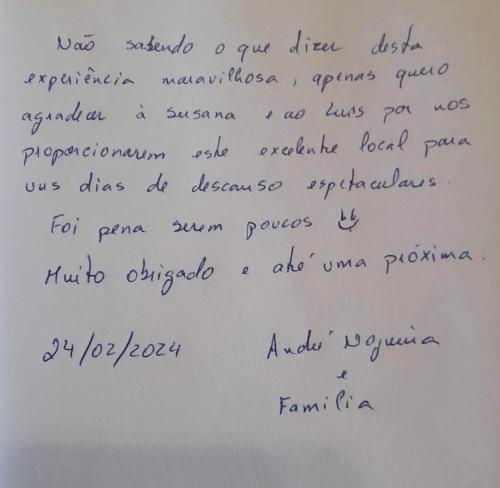 Não sabendo o que dizer desta
experiência maravilhosa, apenas quero
agradecer à Susana e ao Luis por nos
proporcionarem este excelente local para
uns dias de descanso espetaculares.
Foi pena serem poucos
Muito obrigado e até uma próxima.
24/02/2024
André Nogueira
e
Família